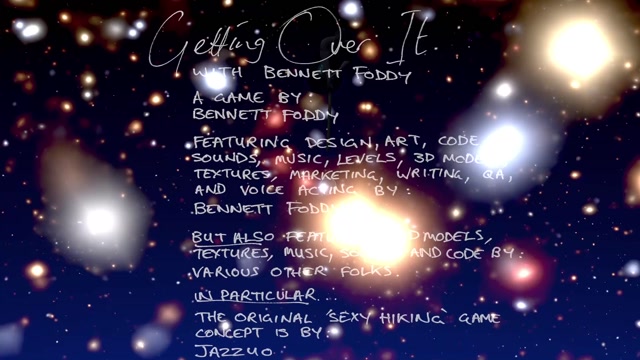 Getting Over It
WITH BENNETT FODDY
A GAME BY:
BENNETT FODDY
FEATURING DESIGN, ART, CODE
SOUNDS, MUSIC, LEVELS, 3D
TEXTURES, MARKETING, WRITING, QA,
AND VOICE ACTING BY:
BENNETT FODDY
BUT ALSO MODELS,
TEXTURES, MUSIC, AND CODE BY:
VARIOUS OTHER FOLKS.
IN PARTICULAR...
THE ORIGINAL 'SEXY HIKING' GAME
CONCEPT IS BY:
JAZZUO